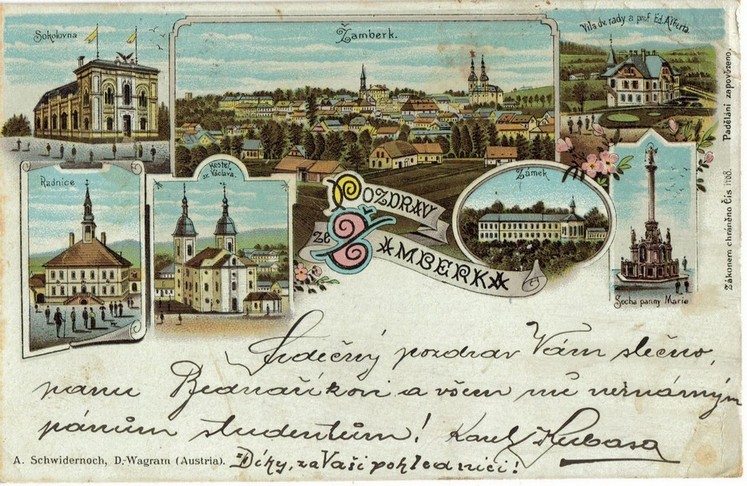 Sokolovna
Žamberk.
Villa dv. rady a prof. Ed. Alberta
Radnice
Kostel
sv. Václava.
Zámek.
Socha panny Marie
POZDRAV
ZE
ŽAMBERKA
Zákonem chráněno Čís 1108. Padělání zapovězeno.
Srdečný pozdrav Vám slečno,
panu Bednaříkovi a všem mě neznámým
pánům studentům! Karel
Díky, za Vaši pohlednici!
A. Schwidernoch, D.-Wagram (Austria).